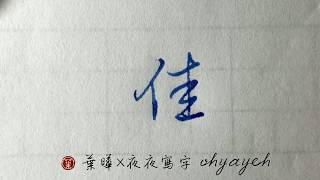 佳
葉曄×夜夜寫字 ohyayeh